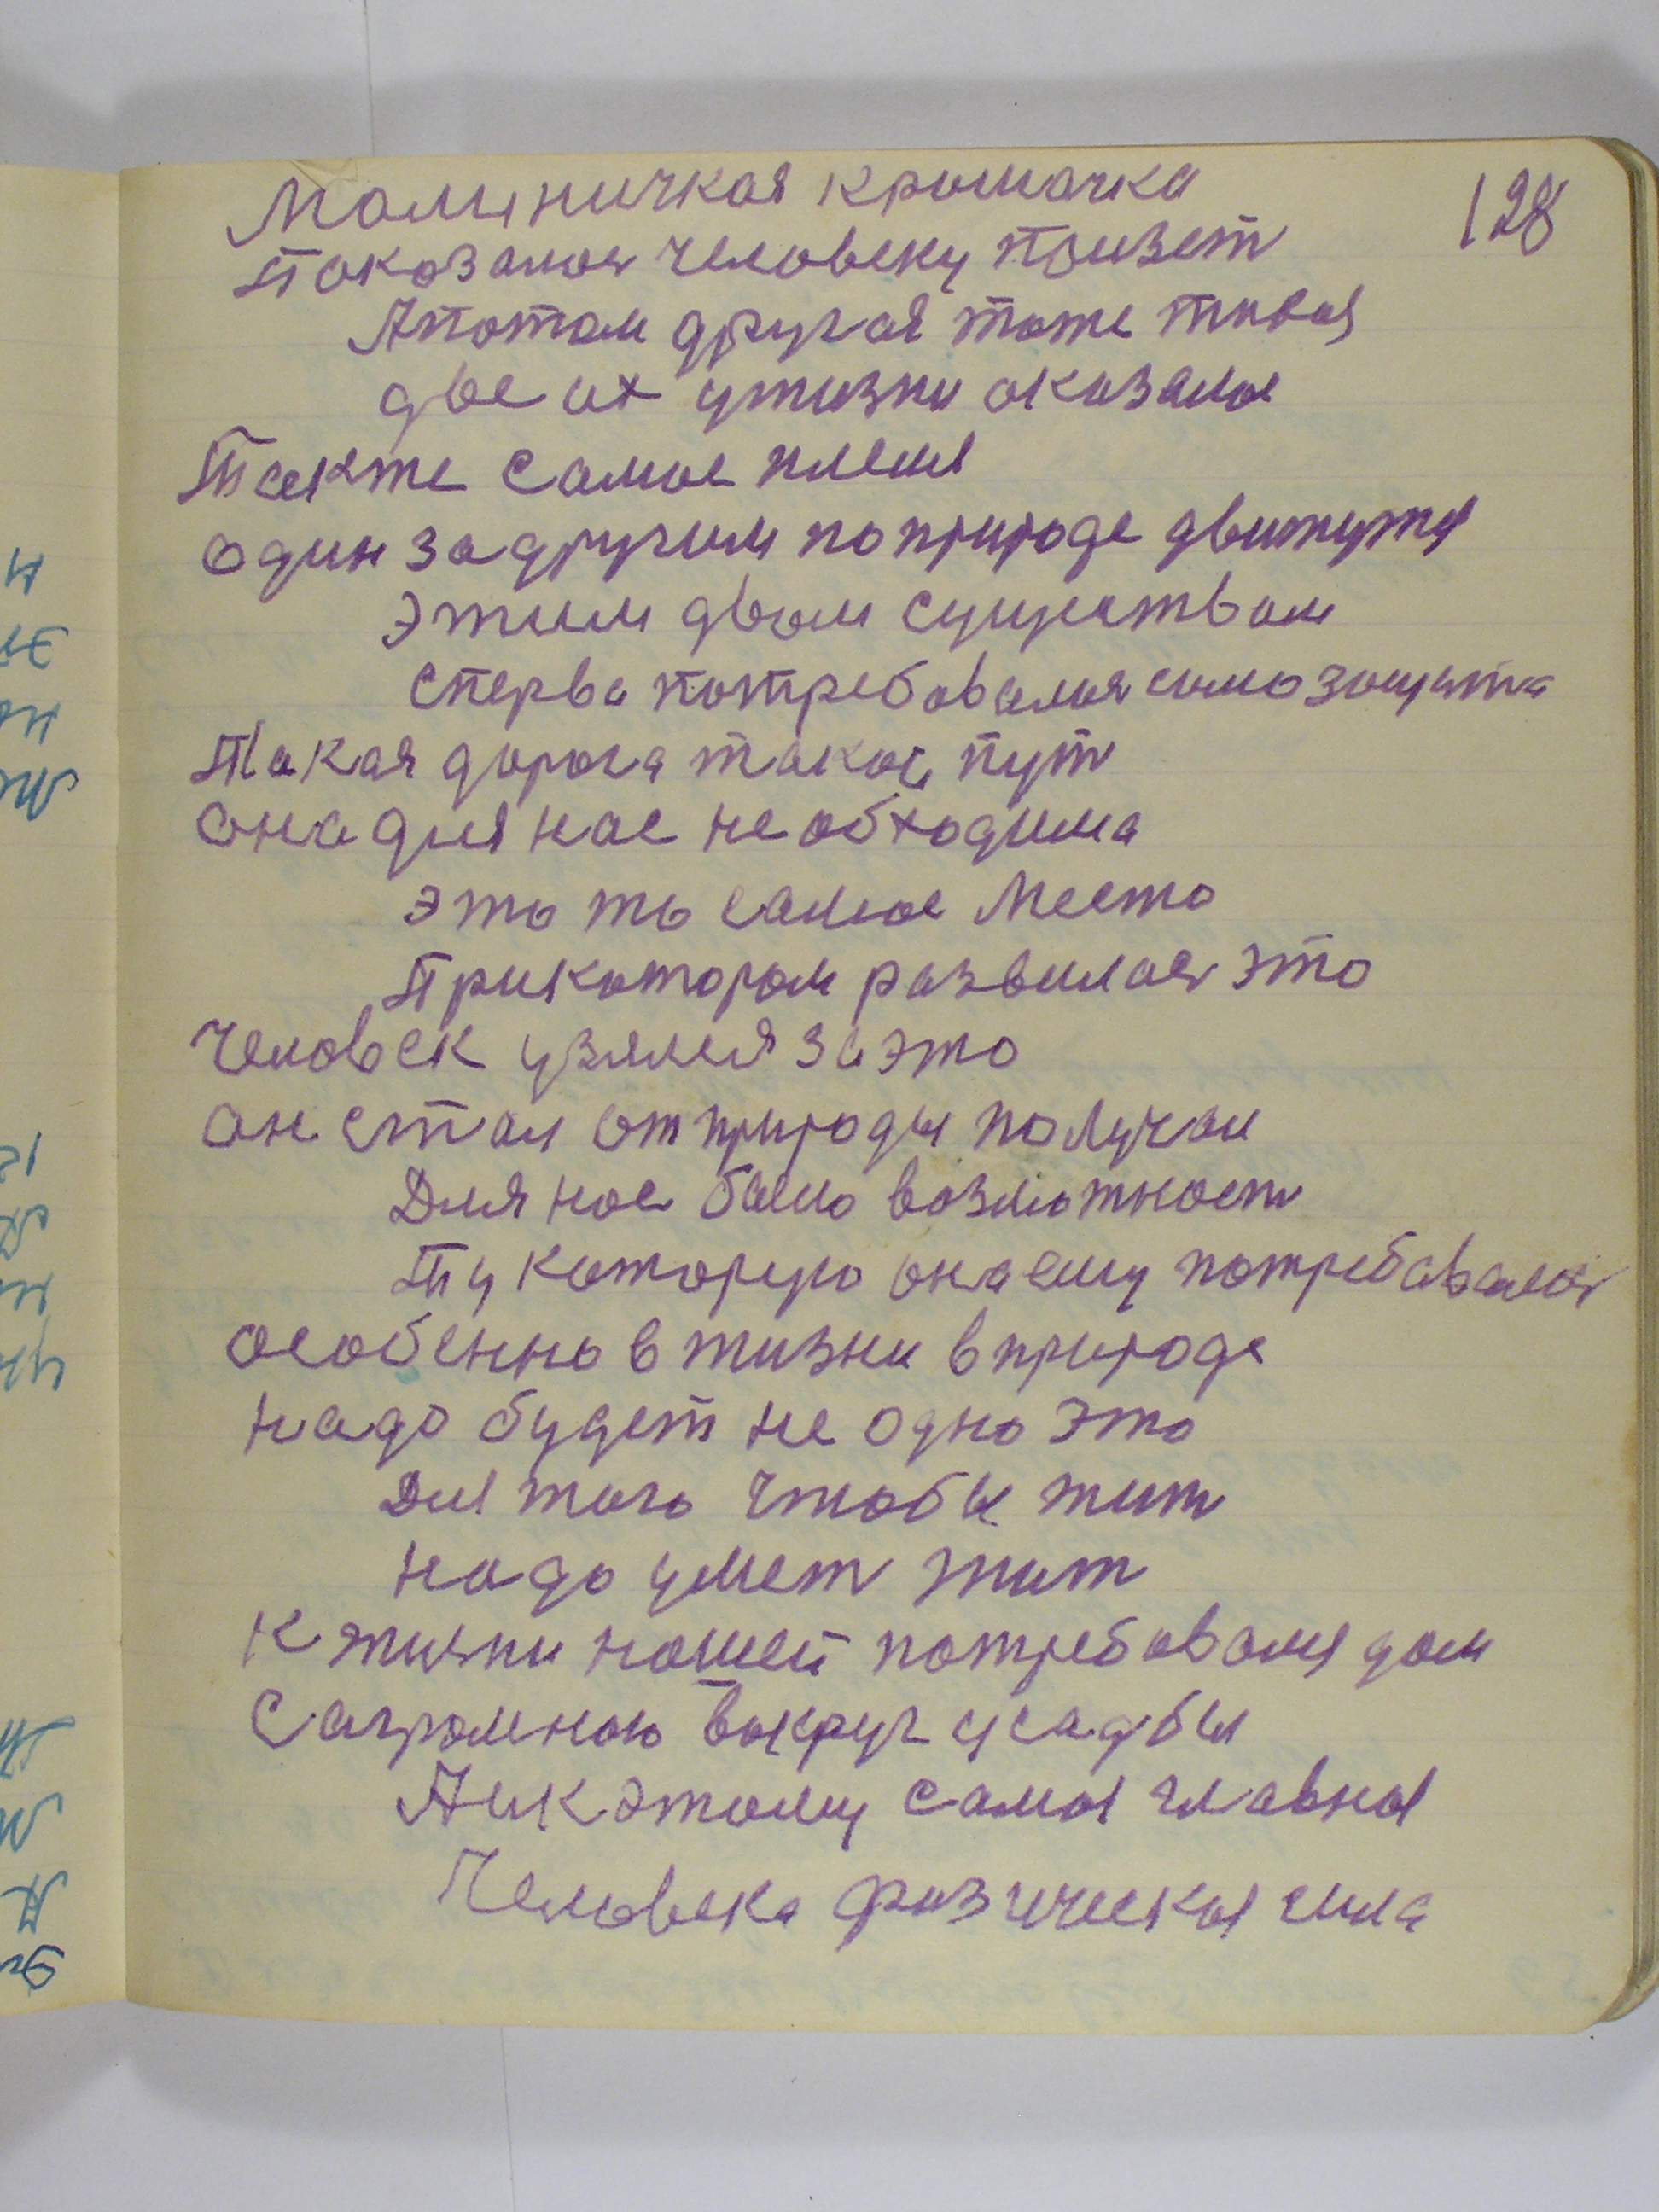 128
Малиничкая крошачка
Показалось человеку ползет
А потом другая тоже живая
две их у жизни оказалос
Так же самое племя
один за другим по природе движутся
Этим двом существам
Сперва потребовалась самозащита
Такая дорога такой пут
она для нас необходима
Это то самое место
При котором развилас это
Человек узялся за это
он стал от природы получаи
Для нас было возможност
Ту которую она ему потребавалас
особенно в жизни в природе
надо будет не одно это
Для того чтобы жит
надо умет жит
К жизни нашей потребовался дом
С агромною вокруг усадбы
А и к этому самая главная
Человека физическая сила